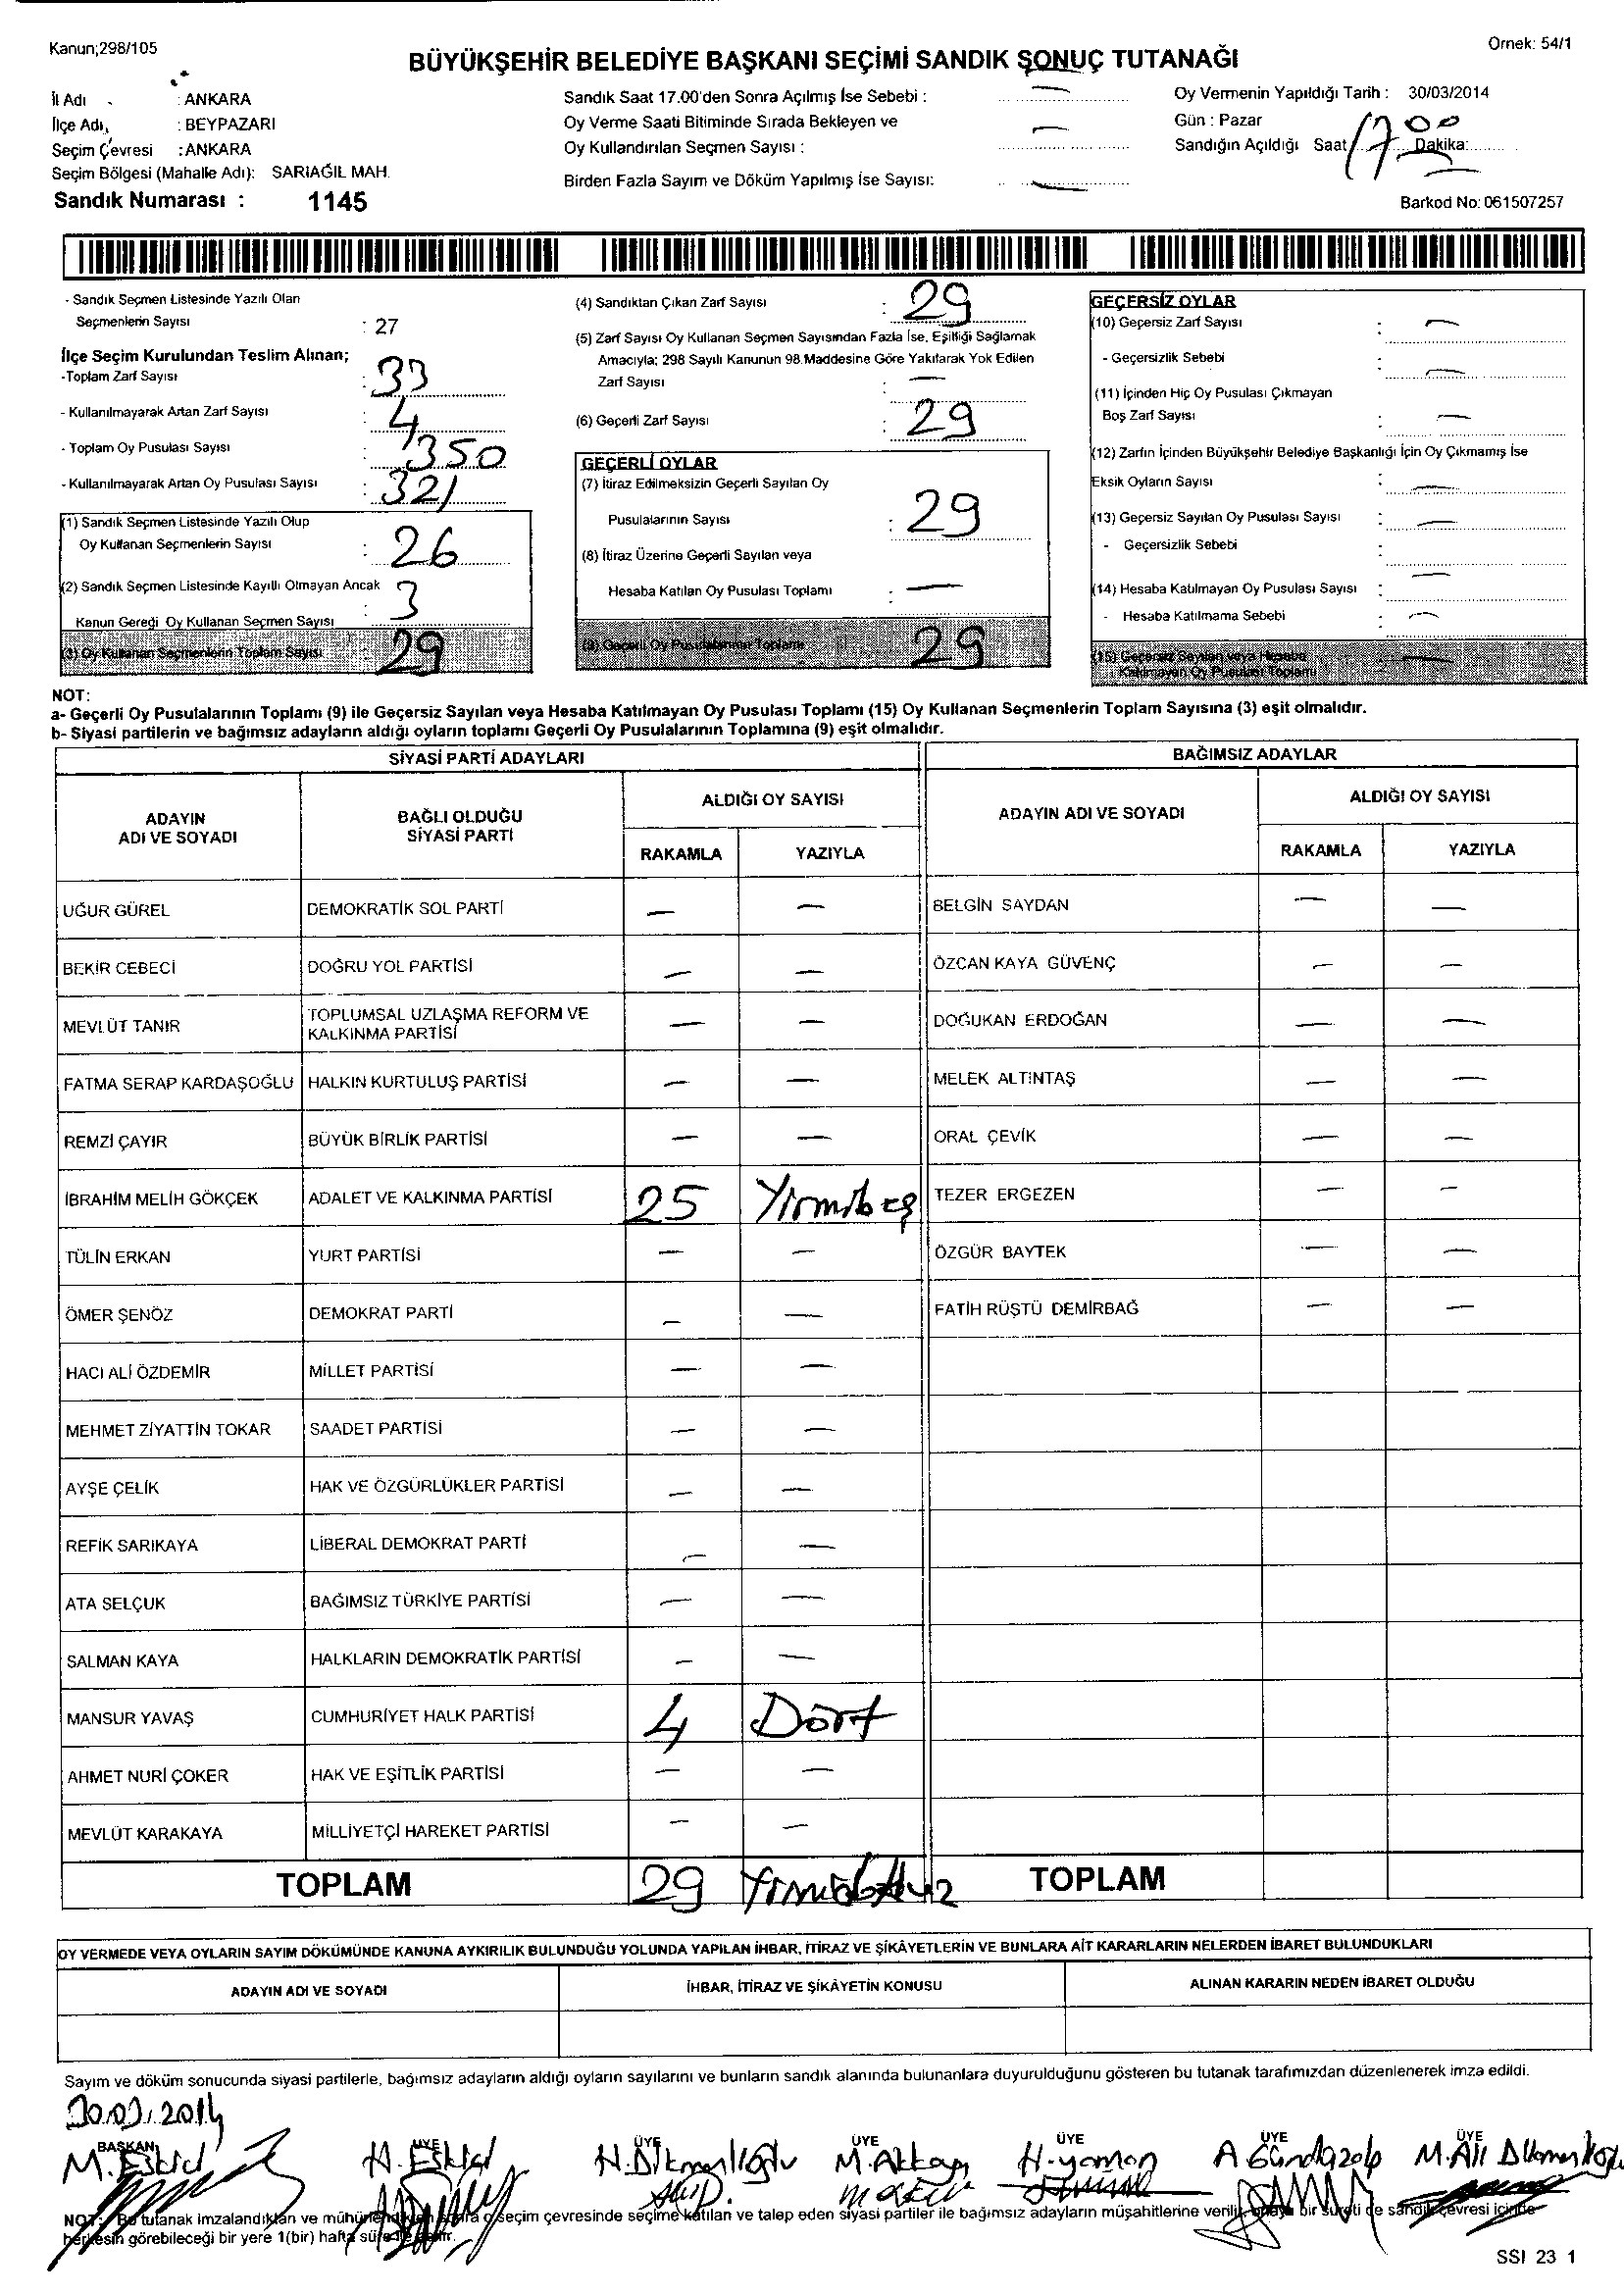 Kanun;298/105
Örnek: 54/1
BÜYÜKŞEHİR BELEDİYE BAŞKANI SEÇİMİ SANDIK SONUÇ TUTANAĞI
İl Adı : ANKARA
İlçe Adı : BEYPAZARI
Seçim Çevresi : ANKARA
Seçim Bölgesi (Mahalle Adı): SARIAĞIL MAH.
Sandık Numarası : 1145
Sandık Saat 17.00'den Sonra Açılmış İse Sebebi : —
Oy Verme Saati Bitiminde Sırada Bekleyen ve
Oy Kullandırılan Seçmen Sayısı : —
Birden Fazla Sayım ve Döküm Yapılmış İse Sayısı: —
Oy Vermenin Yapıldığı Tarih : 30/03/2014
Gün : Pazar
Sandığın Açıldığı Saat 17 Dakika: 00
Barkod No: 061507257
- Sandık Seçmen Listesinde Yazılı Olan
Seçmenlerin Sayısı : 27
İlçe Seçim Kurulundan Teslim Alınan;
-Toplam Zarf Sayısı : 33
- Kullanılmayarak Artan Zarf Sayısı : 4
- Toplam Oy Pusulası Sayısı : 350
- Kullanılmayarak Artan Oy Pusulası Sayısı : 321
(1) Sandık Seçmen Listesinde Yazılı Olup
Oy Kullanan Seçmenlerin Sayısı : 26
(2) Sandık Seçmen Listesinde Kayıtlı Olmayan Ancak
Kanun Gereği Oy Kullanan Seçmen Sayısı : 3
(3) Oy Kullanan Seçmenlerin Toplam Sayısı 29
(4) Sandıktan Çıkan Zarf Sayısı : 29
(5) Zarf Sayısı Oy Kullanan Seçmen Sayısından Fazla İse, Eşitliği Sağlamak
Amacıyla; 298 Sayılı Kanunun 98.Maddesine Göre Yakılarak Yok Edilen
Zarf Sayısı : —
(6) Geçerli Zarf Sayısı : 29
GEÇERLİ OYLAR
(7) İtiraz Edilmeksizin Geçerli Sayılan Oy
Pusulalarının Sayısı : 29
(8) İtiraz Üzerine Geçerli Sayılan veya
Hesaba Katılan Oy Pusulası Toplamı : —
(9) Geçerli Oy Pusulalarının Toplamı 29
GEÇERSİZ OYLAR
(10) Geçersiz Zarf Sayısı : —
- Geçersizlik Sebebi : —
(11) İçinden Hiç Oy Pusulası Çıkmayan
Boş Zarf Sayısı : —
(12) Zarfın İçinden Büyükşehir Belediye Başkanlığı İçin Oy Çıkmamış İse
Eksik Oyların Sayısı : —
(13) Geçersiz Sayılan Oy Pusulası Sayısı : —
- Geçersizlik Sebebi : —
(14) Hesaba Katılmayan Oy Pusulası Sayısı : —
- Hesaba Katılmama Sebebi : —
(15) Geçersiz Sayılan veya Hesaba
Katılmayan Oy Pusulası Toplamı —
NOT:
a- Geçerli Oy Pusulalarının Toplamı (9) ile Geçersiz Sayılan veya Hesaba Katılmayan Oy Pusulası Toplamı (15) Oy Kullanan Seçmenlerin Toplam Sayısına (3) eşit olmalıdır.
b- Siyasi partilerin ve bağımsız adayların aldığı oyların toplamı Geçerli Oy Pusulalarının Toplamına (9) eşit olmalıdır.
SİYASİ PARTİ ADAYLARI
ADAYIN ADI VE SOYADI BAĞLI OLDUĞU SİYASİ PARTİ ALDIĞI OY SAYISI
RAKAMLA YAZIYLA
UĞUR GÜREL DEMOKRATİK SOL PARTİ — —
BEKİR CEBECİ DOĞRU YOL PARTİSİ — —
MEVLÜT TANIR TOPLUMSAL UZLAŞMA REFORM VE KALKINMA PARTİSİ — —
FATMA SERAP KARDAŞOĞLU HALKIN KURTULUŞ PARTİSİ — —
REMZİ ÇAYIR BÜYÜK BİRLİK PARTİSİ — —
İBRAHİM MELİH GÖKÇEK ADALET VE KALKINMA PARTİSİ 25 Yirmibeş
TÜLİN ERKAN YURT PARTİSİ — —
ÖMER ŞENÖZ DEMOKRAT PARTİ — —
HACI ALİ ÖZDEMİR MİLLET PARTİSİ — —
MEHMET ZİYATTİN TOKAR SAADET PARTİSİ — —
AYŞE ÇELİK HAK VE ÖZGÜRLÜKLER PARTİSİ — —
REFİK SARIKAYA LİBERAL DEMOKRAT PARTİ — —
ATA SELÇUK BAĞIMSIZ TÜRKİYE PARTİSİ — —
SALMAN KAYA HALKLARIN DEMOKRATİK PARTİSİ — —
MANSUR YAVAŞ CUMHURİYET HALK PARTİSİ 4 Dört
AHMET NURİ ÇOKER HAK VE EŞİTLİK PARTİSİ — —
MEVLÜT KARAKAYA MİLLİYETÇİ HAREKET PARTİSİ — —
TOPLAM 29 Yirmidokuz
BAĞIMSIZ ADAYLAR
ADAYIN ADI VE SOYADI ALDIĞI OY SAYISI
RAKAMLA YAZIYLA
BELGİN SAYDAN — —
ÖZCAN KAYA GÜVENÇ — —
DOĞUKAN ERDOĞAN — —
MELEK ALTINTAŞ — —
ORAL ÇEVİK — —
TEZER ERGEZEN — —
ÖZGÜR BAYTEK — —
FATİH RÜŞTÜ DEMİRBAĞ — —
TOPLAM
OY VERMEDE VEYA OYLARIN SAYIM DÖKÜMÜNDE KANUNA AYKIRILIK BULUNDUĞU YOLUNDA YAPILAN İHBAR, İTİRAZ VE ŞİKÂYETLERİN VE BUNLARA AİT KARARLARIN NELERDEN İBARET BULUNDUKLARI
ADAYIN ADI VE SOYADI İHBAR, İTİRAZ VE ŞİKÂYETİN KONUSU ALINAN KARARIN NEDEN İBARET OLDUĞU
Sayım ve döküm sonucunda siyasi partilerle, bağımsız adayların aldığı oyların sayılarını ve bunların sandık alanında bulunanlara duyurulduğunu gösteren bu tutanak tarafımızdan düzenlenerek imza edildi.
30.03.2014
BAŞKAN ÜYE ÜYE ÜYE ÜYE ÜYE ÜYE
M. Eskici H. Eskici H. Dikmenlioğlu M. Akkaş H. yaman A Gündazalp M. Ali Dikmenlioğlu
NOT: Bu tutanak imzalandıktan ve mühürlendikten sonra o seçim çevresinde seçime katılan ve talep eden siyasi partiler ile bağımsız adayların müşahitlerine verilir, onaylı bir sureti de sandık çevresi içinde
herkesin görebileceği bir yere 1(bir) hafta süre ile asılır.
SSI 23 1